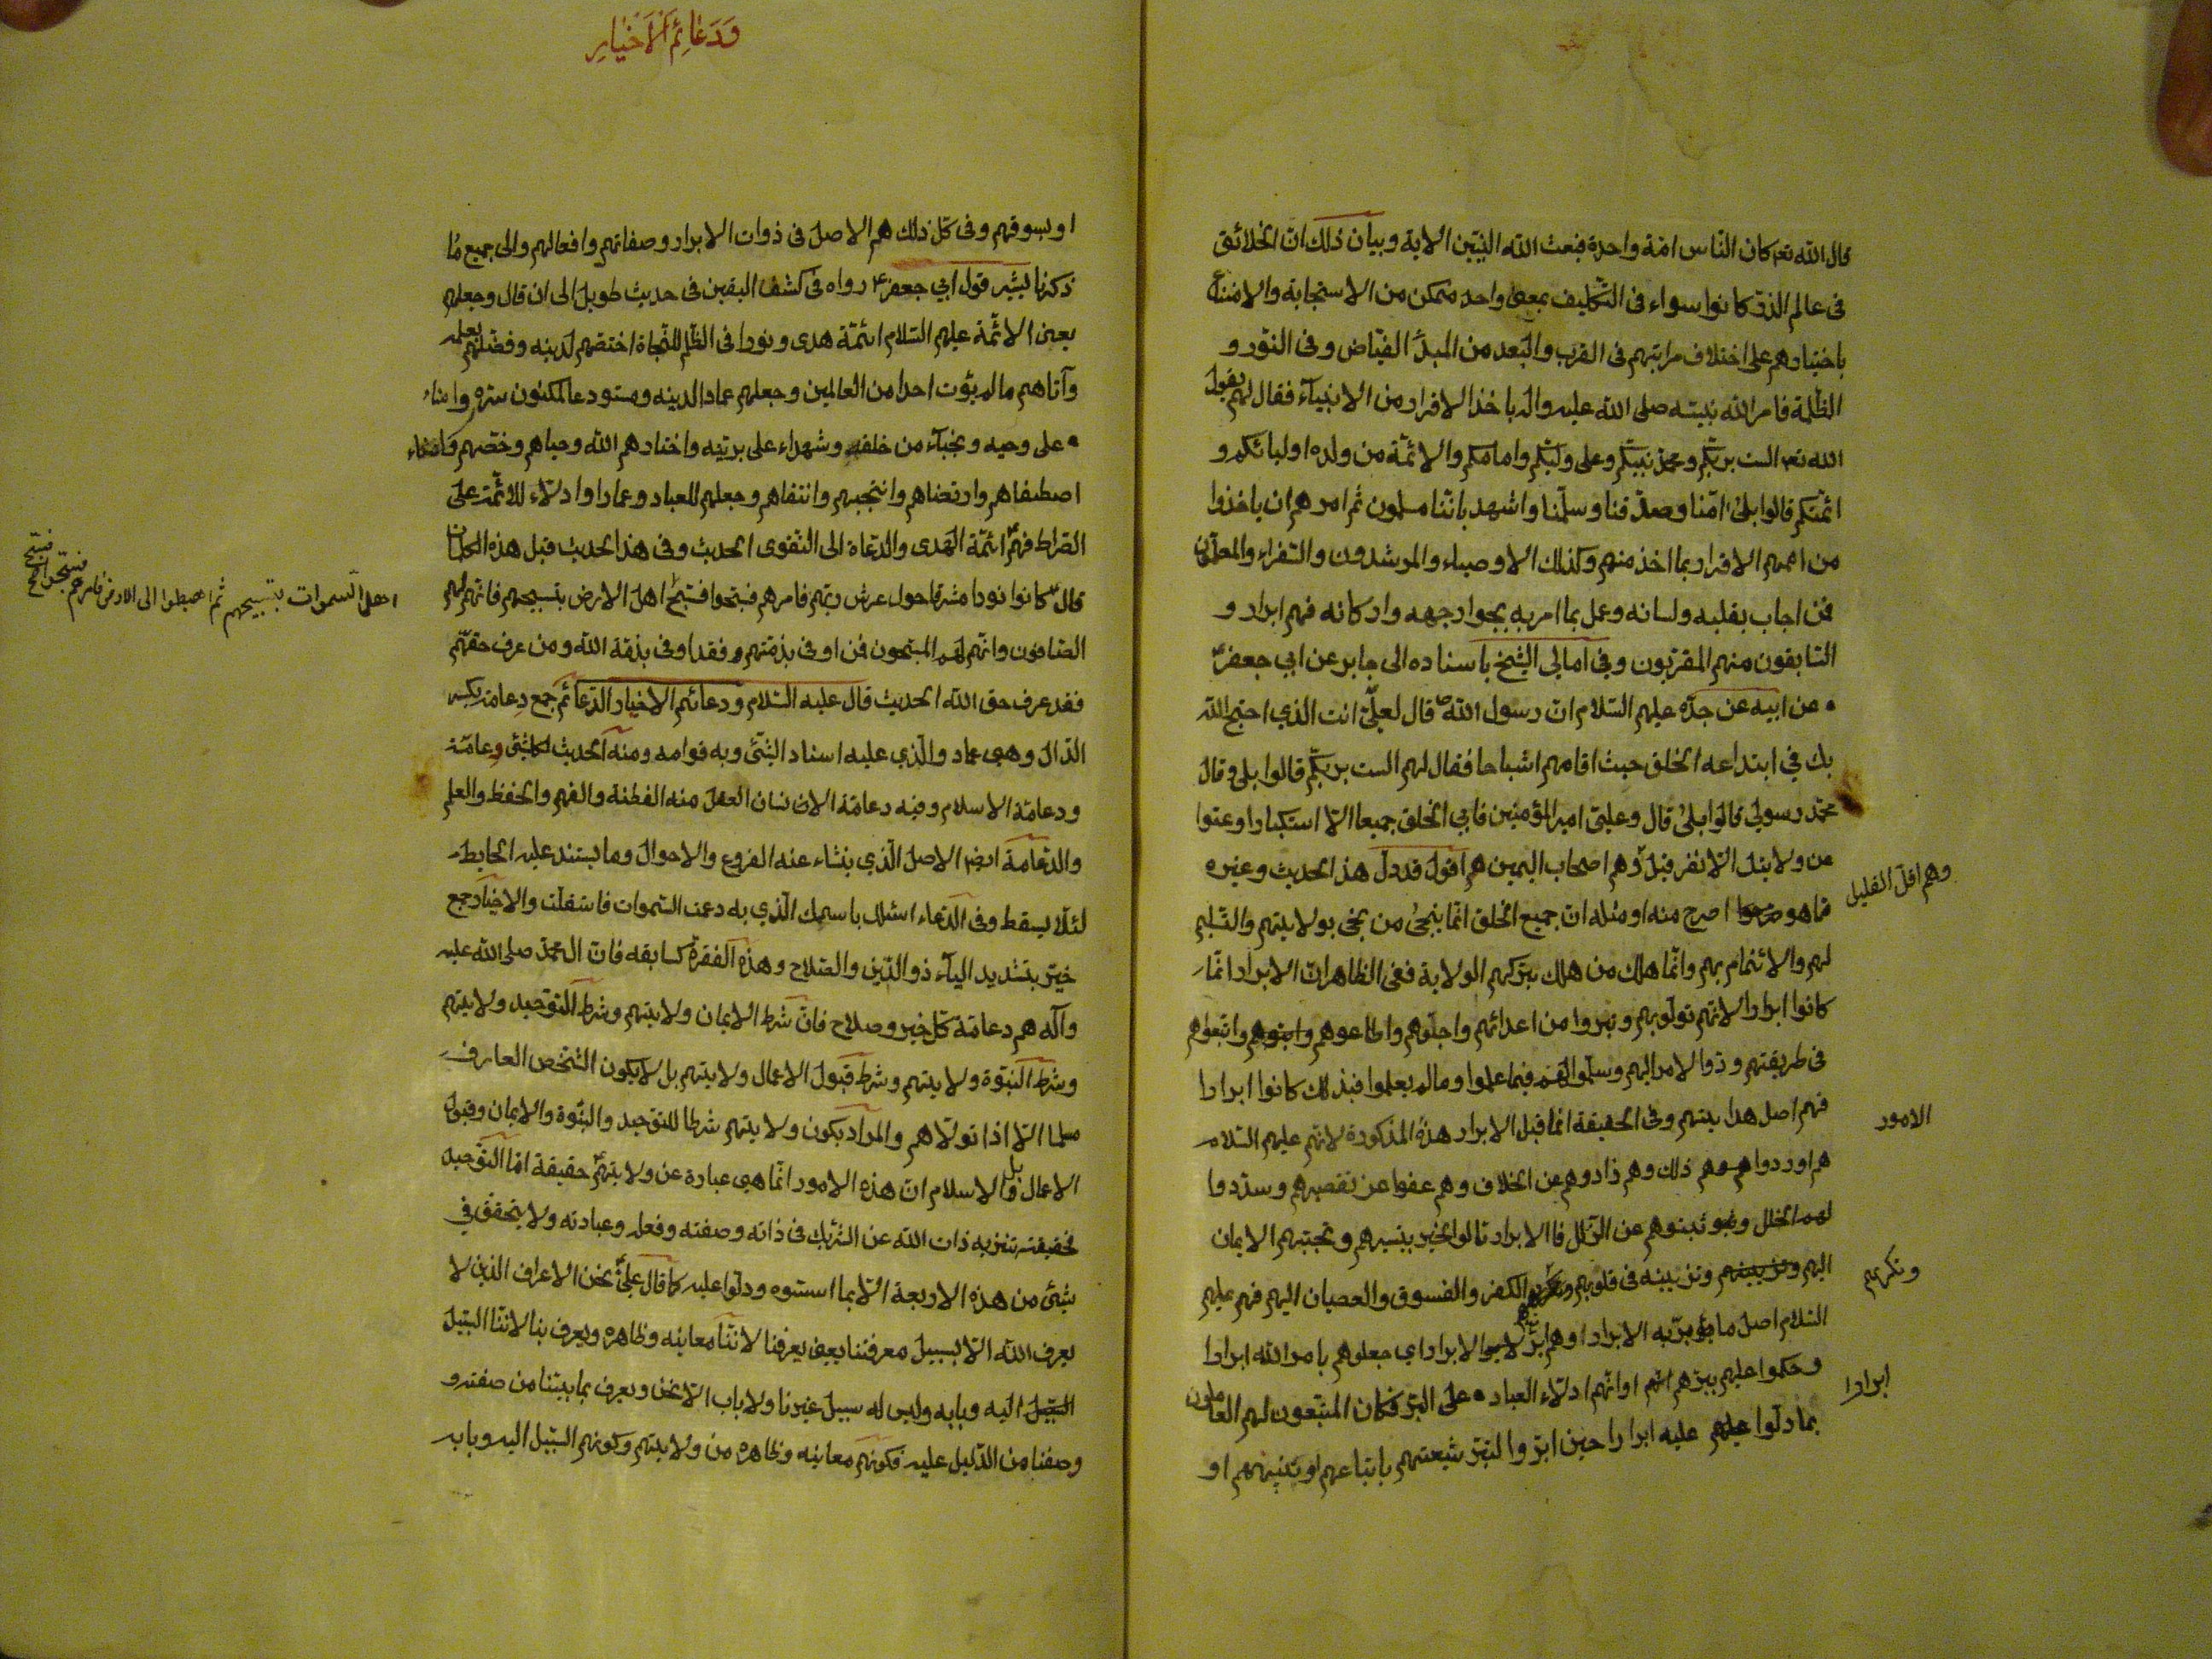 قال الله تع كان النّاس امّة واحدة فبعث الله النبيّين الاية وبيان ذلك انّ الخلائق
فى عالم الذرّ كانوا سواء فى التكليف بمعنى واحد متمكن من الاستجابة والامتناع
باختيارهم على اختلاف مراتبهم فى القرب والبعد من المبدء الفيّاض وفى النّور و
الظّلمة فامر الله نبيّه صلى الله عليه واله باخذ الاقرار من الانبياء فقال لهم يقول
الله تع الست بربّكم ومحمّد نبيّكم وعلى وليّكم وامامكم والائمّة من ولده اوليائكم و
ائمّتكم قالوا بلى امنّا وصدّقنا وسلّمنا واشهد باننّا مسلمون ثم امرهم ان ياخذوا
من اممهم الاقرار بما اخذ منهم وكذلك الاوصياء والمرشدون والسّفراء والمعلّمون
فمن اجاب بقلبه ولسانه وعمل بما امر به بجوارجهه واركانه فهم ابرار و
السّابقون منهم المقرّبون وفى امالي الشيخ باسناده الى جابر عن ابي جعفر ع
عن ابيه عن جدّه عليهم السّلام انّ رسول الله ص قال لعلىّ ع انت الذي احتج الله
بك في ابتداعه الخلق حيث اقامهم اشباحا فقال لهم الست بربّكم قالوا بلى وقال
محمّد رسولي قالوا بلى قال وعليّ امير المؤمنين فابي الخلق جميعا الّا استكبارا وعتوا
عن ولايتك الّا نفر قليل وهم اصحاب اليمين هم اقول قد دلّ هذا الحديث وغيره
وهم اقلّ القليل
مما هو اصرح منه او مثله انّ جميع الخلق انّما ينجى من نجى بولايتهم والتسليم
لهم والائتمام بهم وانّما هلك من هلك بتركهم الولاية ففى الظاهر انّ الابرار انّما
كانوا ابرارا لانّهم تولّوهم وتبروا من اعدائهم واحبّوهم واطاعوهم واتبعوهم
فى طريقتهم وردّوا الامر اليهم وسلّموا لهم فيما علموا وما لم يعلموا فبذلك كانوا ابرارا
الامور
فهم اصل هدايتهم وفى الحقيقة انّما قيل الابرار هذه المذكورة لانّهم عليهم السّلام
هم اوردوا هم ذلك وهم ذادوهم عن الخلاف وهم عفوا عن تقصيرهم وسدّدوا
لهم الخلل وثبتوهم عن الزّلل فالابرار نالوا الخير بتيسيرهم وتحبّبهم الايمان
اليهم وتزيينه فى قلوبهم الكفر والفسوق والعصيان اليهم فهم عليهم
وتكريهم
السّلام اصل ما يؤبرّ به الابرار الابرار اي جعلوهم بامر الله ابرارا
وحكموا عليهم ببرّهم او انّهم ادلّاء العباد على البرّ فكان المتّبعون لهم العاملون
ابرارا
بما دلّوا عليه ابرارا حين ابرّوا شيعتهم باتباعهم او بتنبيههم او
وَدَعَائِمُ الْاَخْيَارِ
او بسوقهم وفى كلّ ذلك هم الاصل فى ذوات الابرار وصفاتهم وافعالهم والى جميع ما
ذكرنا يشير قول ابي جعفر ع رواه فى كشف اليقين فى حديث طويل الى ان قال وجعلهم
يعنى الائمّة عليهم السّلام ائمّة هدى ونورا فى الظّلم للنّجاة اختصّهم لدينه وفضّلهم بعلمه
وآتاهم ما لم يؤت احدا من العالمين وجعلهم عماد الدينه ومستودعا لمكنون سرّه وامناء
على وحيه ونجباء من خلقه وشهداء على بريّته واختارهم الله وحباهم وخصّهم
اصطفاهم وارتضاهم وانتجبهم وانتقاهم وجعلهم للعباد وعمارا وادلّاء للائمّة على
الصّراط فهم ع ائمّة الهدى والدّعاة الى التقوى الحديث وفى هذا الحديث قبل هذه الكلمات
قال ع كانوا نورا مشرقا حول عرش ربّهم فامرهم فسبّحوا فسبّح اهل الارض بتسبيحهم فانّهم لهم
اهل السّموات بتسبيحهم ثم اهبطوا الى الارض فامرهم فسبّحوا فسبّح
الصّافون وانّهم لهم المسبّحون فمن اوفى بذمّتهم فقد اوفى بذمّة الله ومن عرف حقّهم
فقد عرف حق الله الحديث قال عليه السّلام ودعائم الاخيار الدّعائم جمع دِعامة بكسر
الدّال وهي عماد والّذي عليه اسناد الشّئ وبه قوامه ومنه الحديث لكلّ شئ دعامّة
ودعامّة الاسلام وفيه دعامّة الانسان العقل منه الفطنة والفهم والحفظ والعلم
والدّعامة ايضا الاصل الّذي ينشاء عنه الفروع والاحوال وما يستند عليه الحايط
لئلّا يسقط وفى الدّعاء اسئلك باسمك الّذي به دعمت السّموات فاستقلّت والاخيار جمع
خيّر بتشديد الياء ذو الدّين والصّلاح وهذه الفقرة كسابقه فانّ ال محمّد صلى الله عليه
وآله هم دعامّة كلّ خير وصلاح فانّ شرط الايمان ولايتهم وشرط التّوحيد ولايتهم
وشرط النّبوّة ولايتهم وشرط قبول الاعمال ولايتهم بل لا يكون الشّخص العارف
مسلما الّا اذا تولّاهم والمراد بكون ولايتهم شرطا للتّوحيد والنّبوة والايمان وقبول
الاعمال بل والاسلام انّ هذه الامور انّما هي عبارة عن ولايتهم ع حقيقة امّا التّوحيد
فحقيقته تنزيه ذات الله عن الشّريك فى ذاته وصفته وفعله وعبادته ولا يتحقّق في
شئ من هذه الاربعة الّا بما اسّسوه ودلّوا عليه كما قال علىّ ع نحن الاعراف الذين لا
يعرف الله الّا بسبيل معرفتنا يعنى يعرفنا لانّنا معانيه وظاهره ويعرف بنا لانّنا السّبيل
اليه وبابه وليس له سبيل غيرنا ولا باب الّا نحن ويعرف بما بيّنّا من صفته و
وصفنا من الدّليل عليه فكونهم معانيه وظاهره من ولايتهم وكونهم السّبيل اليه وبابه